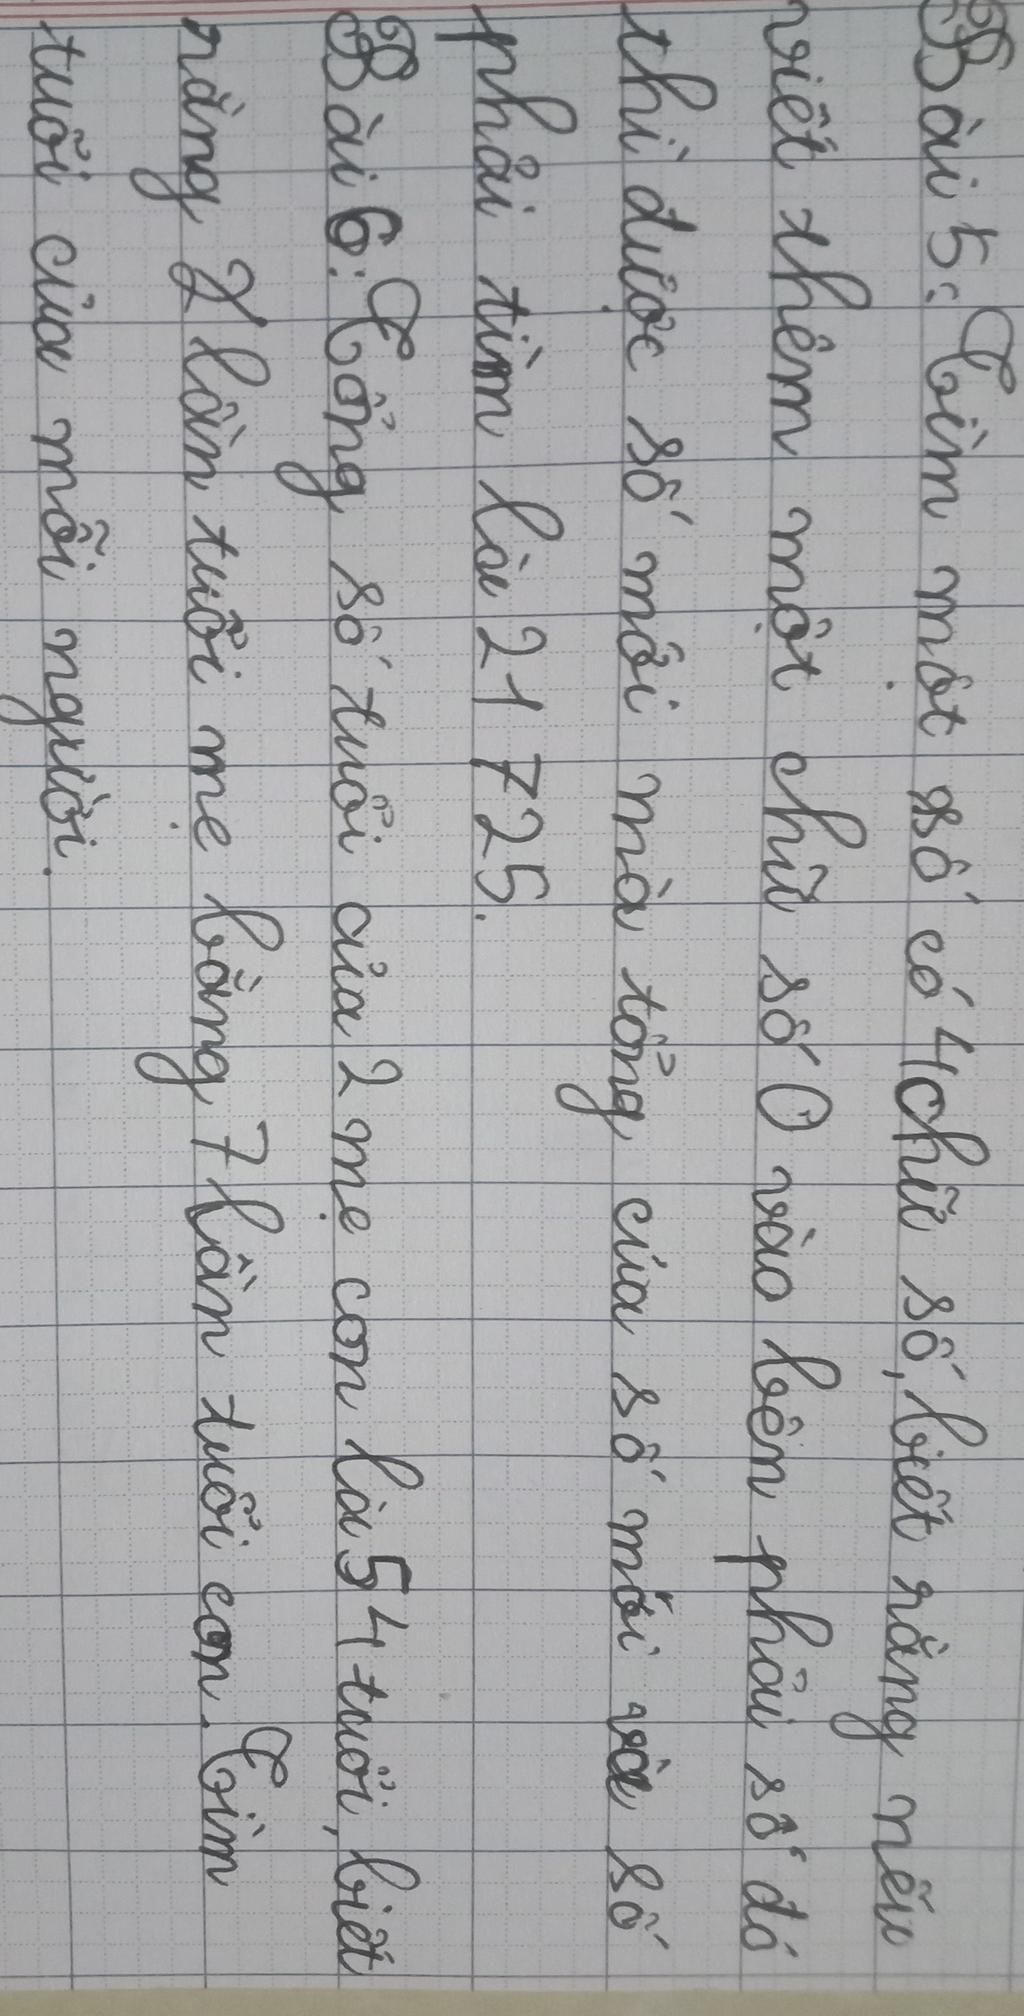 Bài 5: Tìm một số có 4 chữ số, biết rằng nếu
viết thêm một chữ số 0 vào bên phải số đó
thì được số mới mà tổng của số mới và số
phải tìm là 21 725.
Bài 6: Tổng số tuổi của 2 mẹ con là 54 tuổi, biết
rằng 2 lần tuổi mẹ bằng 7 lần tuổi con. Tìm
tuổi của mỗi người.